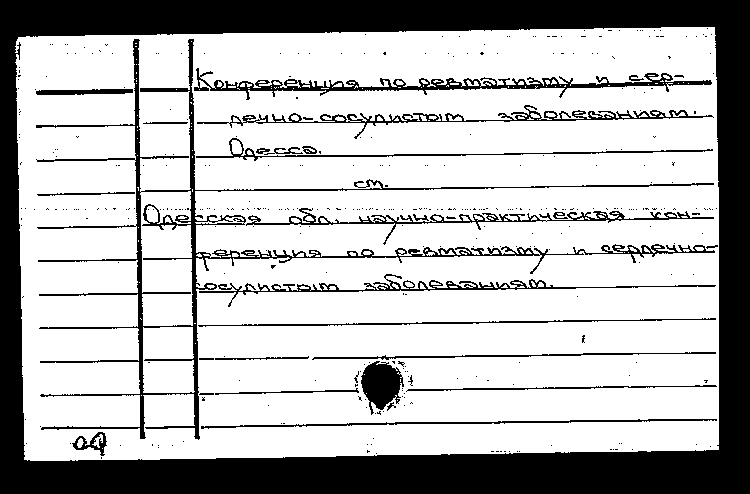 Конференция по ревматизму и сер-
дечно-сосудистым заболеваниям.
Одесса.
см.
Одесская обл. научно-практическая кон-
ференция по ревматизму и сердечно-
сосудистым заболеваниям.